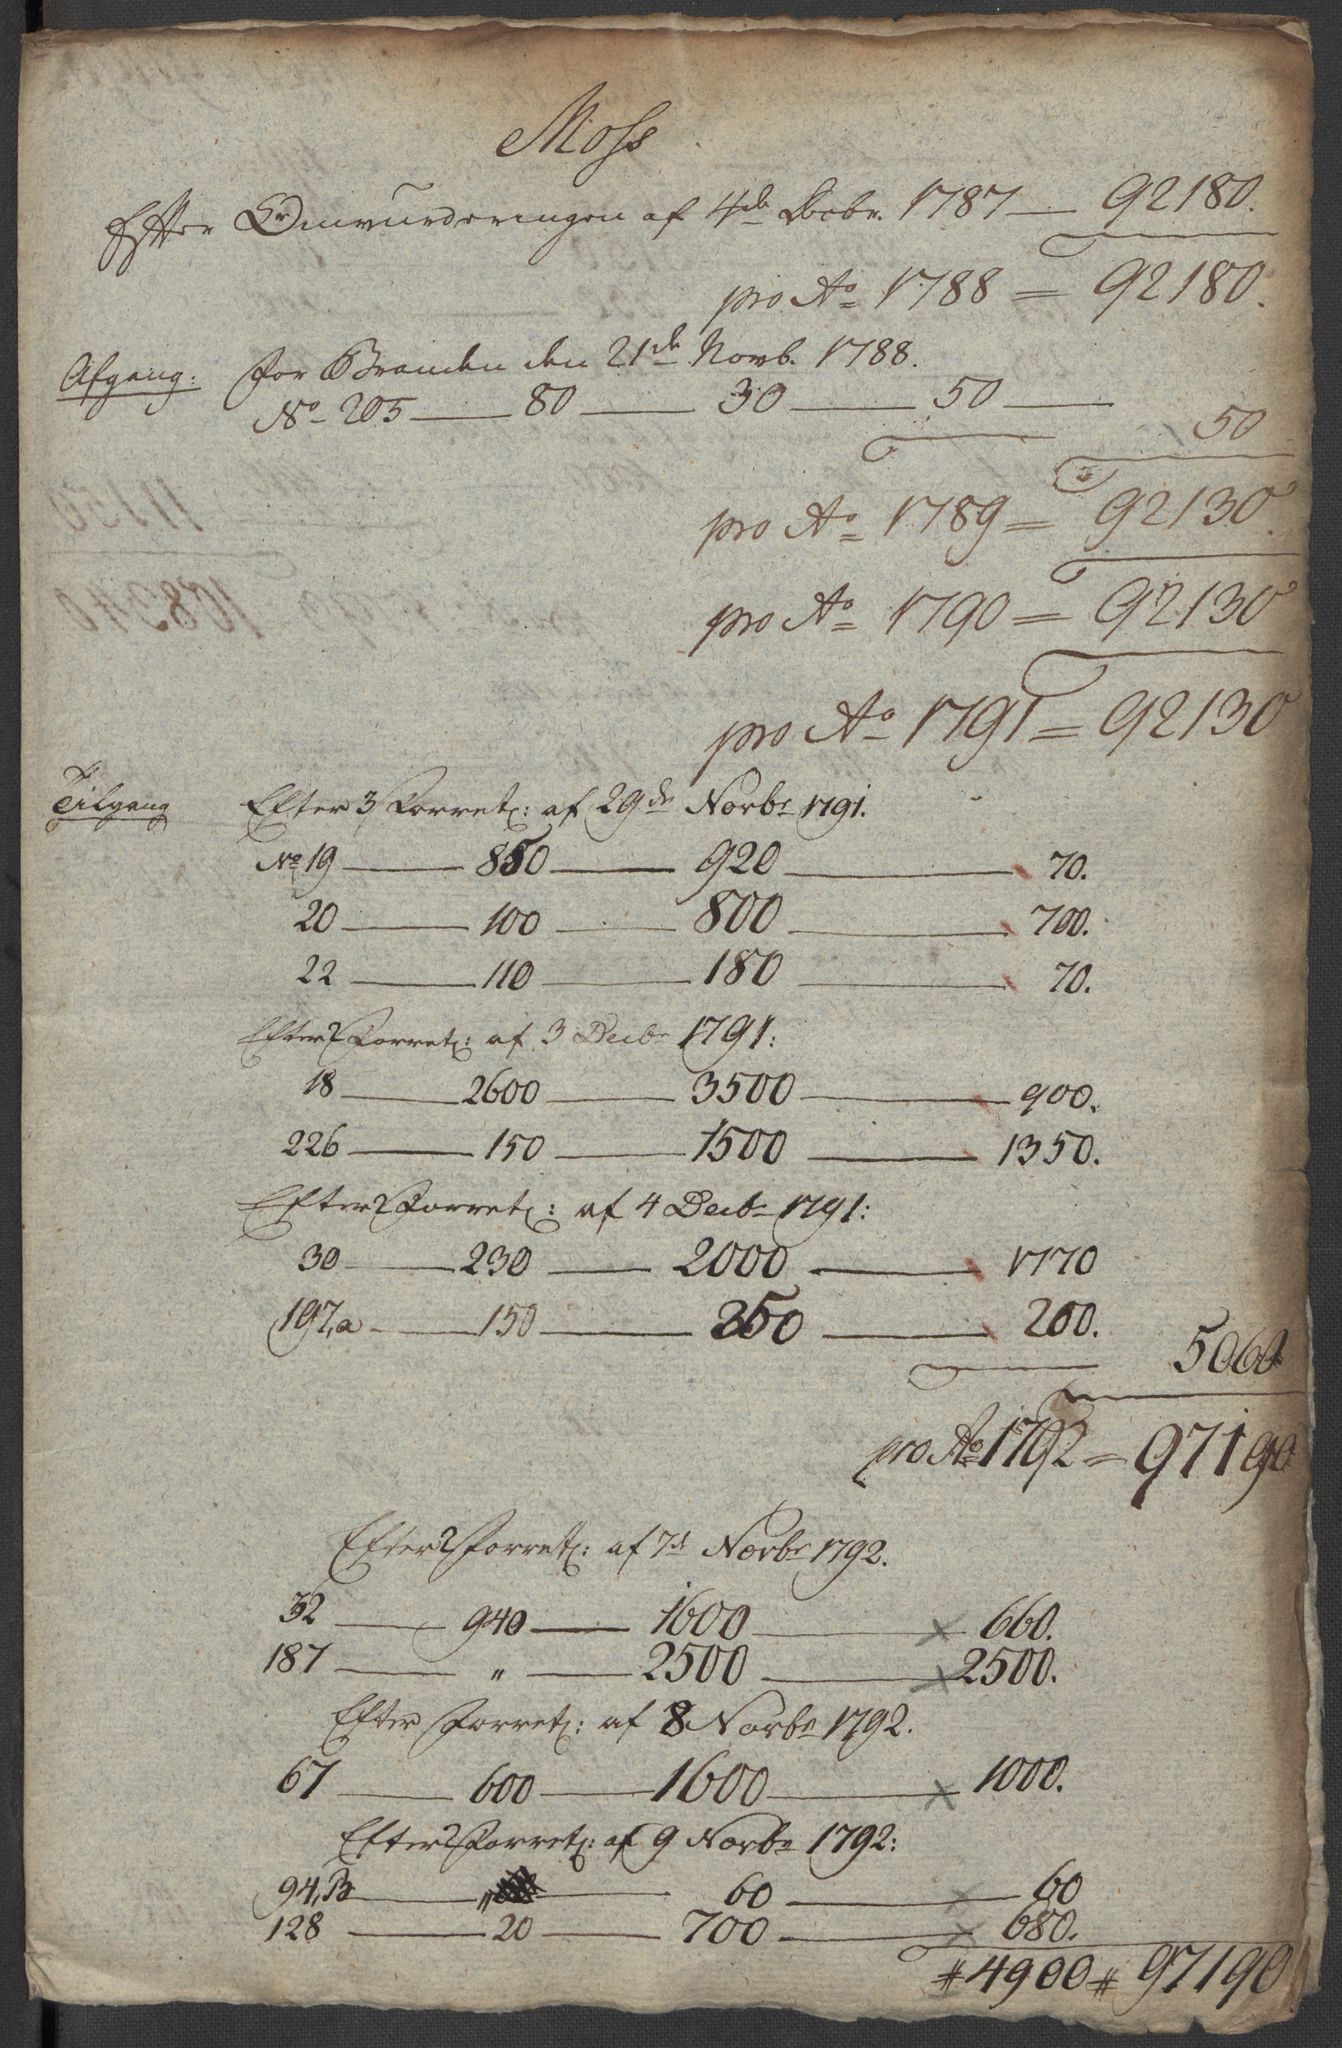 Moss
Efter Omvurderingen af 4de Decbr. 1787 — 92180.
pro Ao 1788 = 92180.
Afgang: for Branden den 21de Novb. 1788.
No 205 — 80 — 30 — 50 —
50
pro Ao 1789 = 92130.
pro Ao 1790 = 92130
pro Ao 1791 = 92130
Tilgang Efter Forretn: af 29de Novbr 1791.
No 19 — 850 — 920 — 70.
20 — 100 — 800 — 700.
22 — 110 — 180 — 70.
Efter Forretn: af 3 Decbr 1791:
18 — 2600 — 3500 — 900.
226 — 150 — 1500 — 1350.
Efter Forretn: af 4 Decbr 1791:
30 — 230 — 2000 — 1770
197,a — 150 — 350 — 200.
5060
pro Ao 1792 = 97190
Efter Forretn: af 7de Novbr 1792.
32 — 940 — 1600 — 660.
187 — " — 2500 — 2500.
Efter Forretn: af 8 Novbr 1792.
67 — 600 — 1600 — 1000.
Efter Forretn: af 9 Novbr 1792:
94,B — " — 60 — 60
128 — 20 — 700 — 680.
# 4900 # 97190